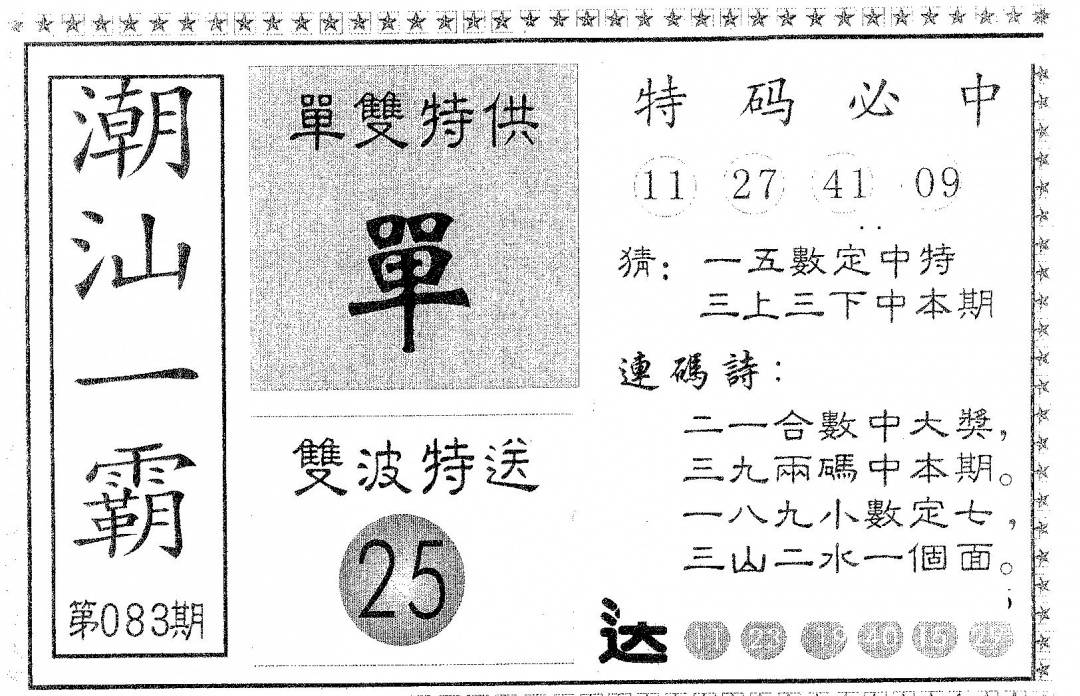 潮汕一霸
第083期
單雙特供
單
雙波特送
25
特码必中
11 27 41 09
猜：一五數定中特
三上三下中本期
連碼詩：
二一合數中大獎，
三九兩碼中本期。
一八九小數定七，
三山二水一個面。
达 11 23 19 40 15